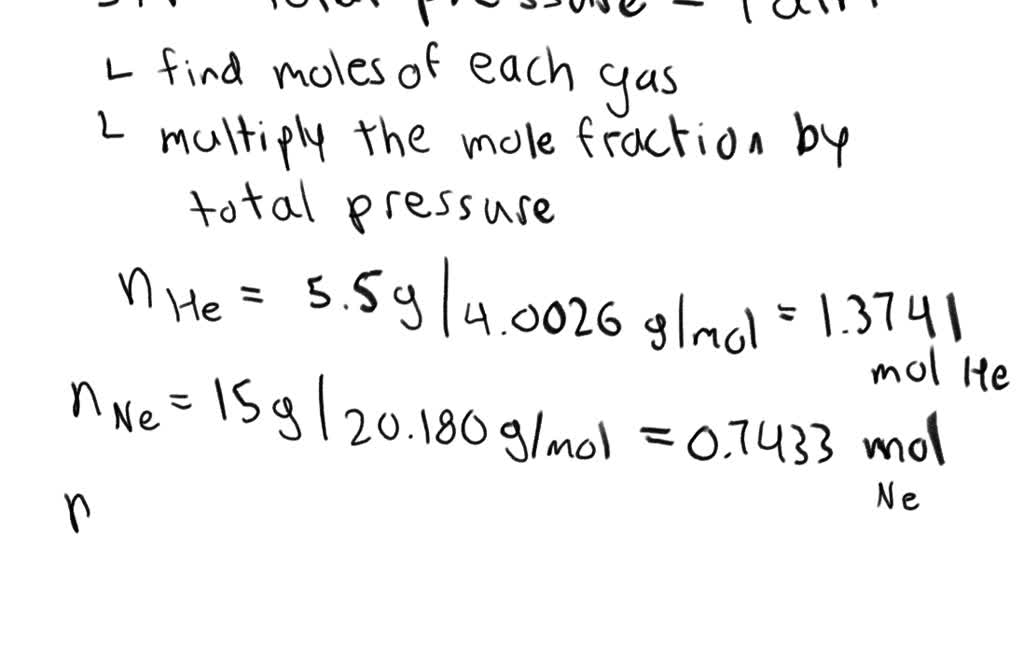 total pressure = 1 atm
∟ find moles of each gas
∟ multiply the mole fraction by
total pressure
n He = 5.5g / 4.0026 g/mol = 1.3741
mol He
n Ne = 15g / 20.180 g/mol = 0.7433 mol
Ne
n